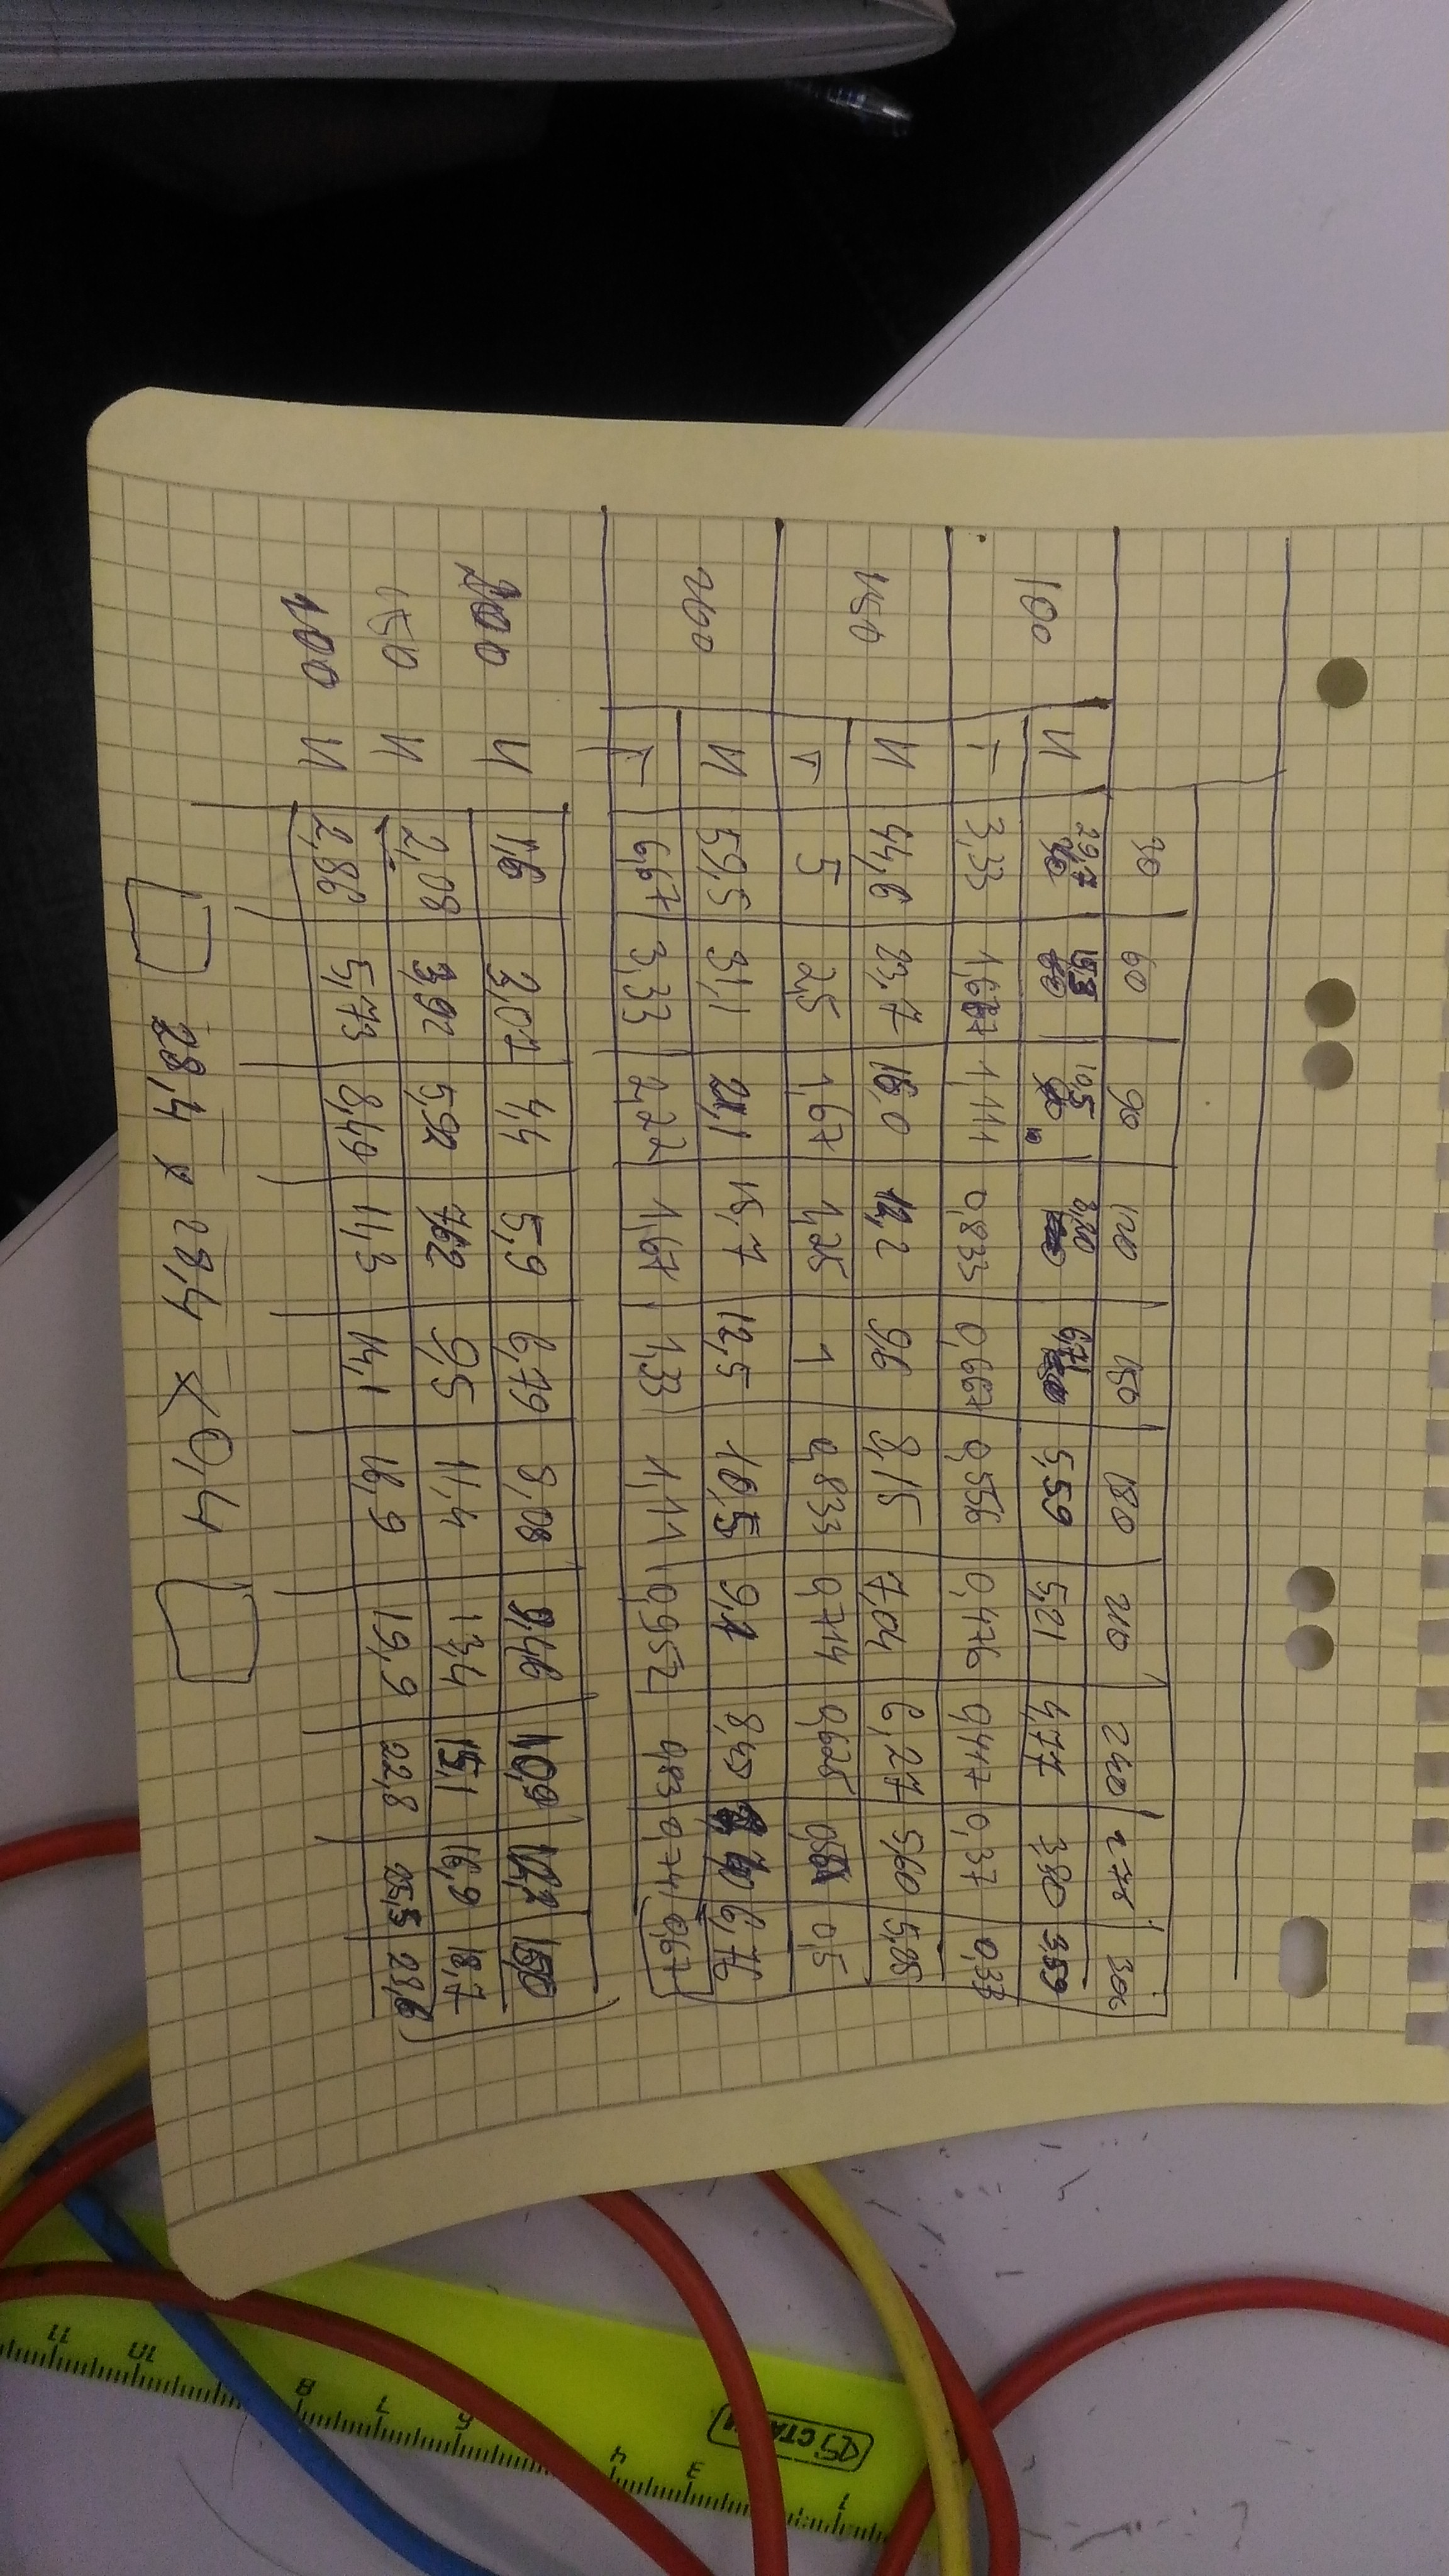 30 60 90 120 150 180 210 240 275 300
100 И 29,7 10,5 8,20 6,71 5,59 5,21 4,77 3,80 3,59
Г 3,33 1,667 1,111 0,833 0,667 0,556 0,476 0,417 0,37 0,33
150 И 44,6 23,7 16,0 12,2 9,6 8,15 7,04 6,27 5,60 5,05
Г 5 2,5 1,67 1,25 1 0,833 0,714 0,625 0,5
200 И 59,5 31,1 21,1 15,7 12,5 10,5 9,1 8,40 6,76
Г 6,67 3,33 2,22 1,67 1,33 1,11 0,952 0,83 0,741 0,67
200 И 1,6 3,02 4,4 5,9 6,79 8,08 9,46 10,9 12,2
150 И 2,08 3,92 5,92 7,62 9,5 11,4 13,4 15,1 16,9 18,7
100 И 2,86 5,73 8,49 11,3 14,1 16,9 19,9 22,8 25,5
28,4 x 28,4 x 0,4
СТАММ
1 3 4 6 7 8 10 11